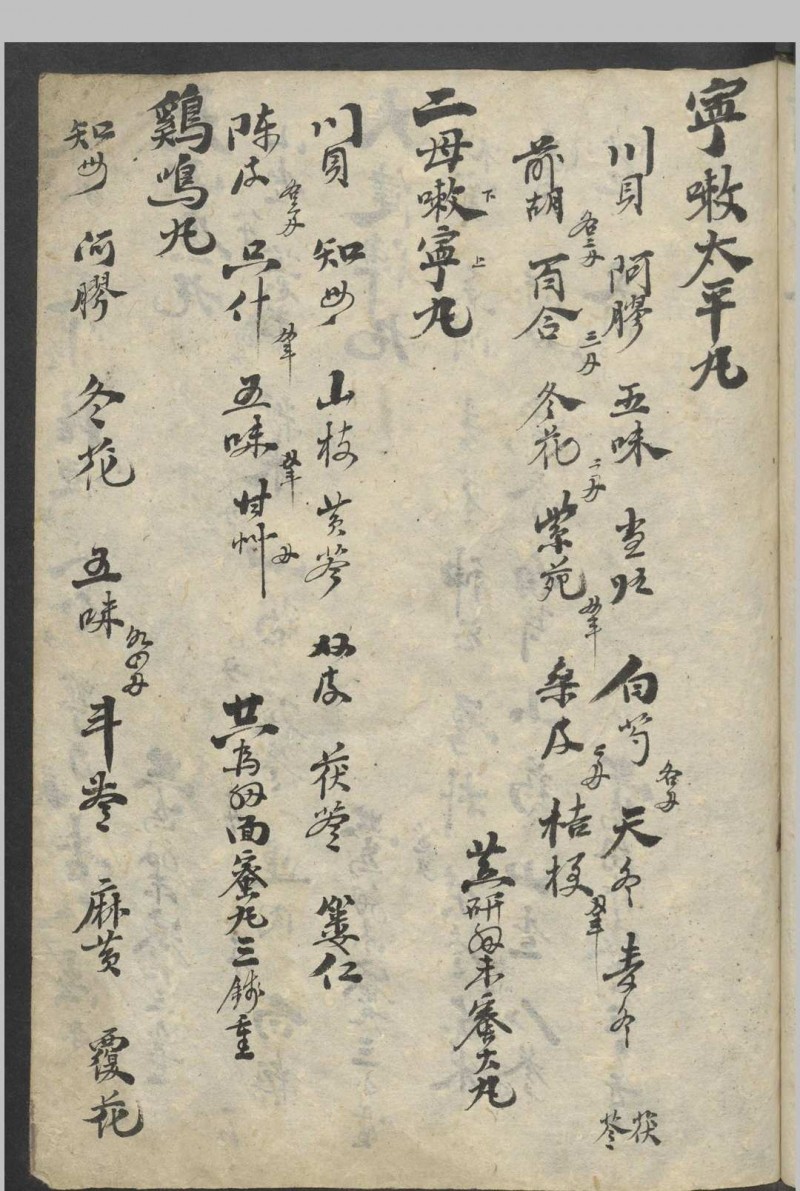 寧嗽太平丸
川貝 阿膠 五味 当归 白芍 各刄 天冬 麦冬 茯苓
前胡 各二刄 百合 三刄 冬花 二刄 紫苑 桑皮 二刄 桔梗
共研細末蜜大丸
二母嗽寧丸 下 上
川貝 知母 山枝 黄芩 双皮 茯苓 蔞仁
陈皮 各二刄 只什 五味 甘艸 刄 共為細面蜜丸三錢重
鷄鳴丸
知母 阿膠 冬花 五味 各四刄 斗苓 麻黄 覆花